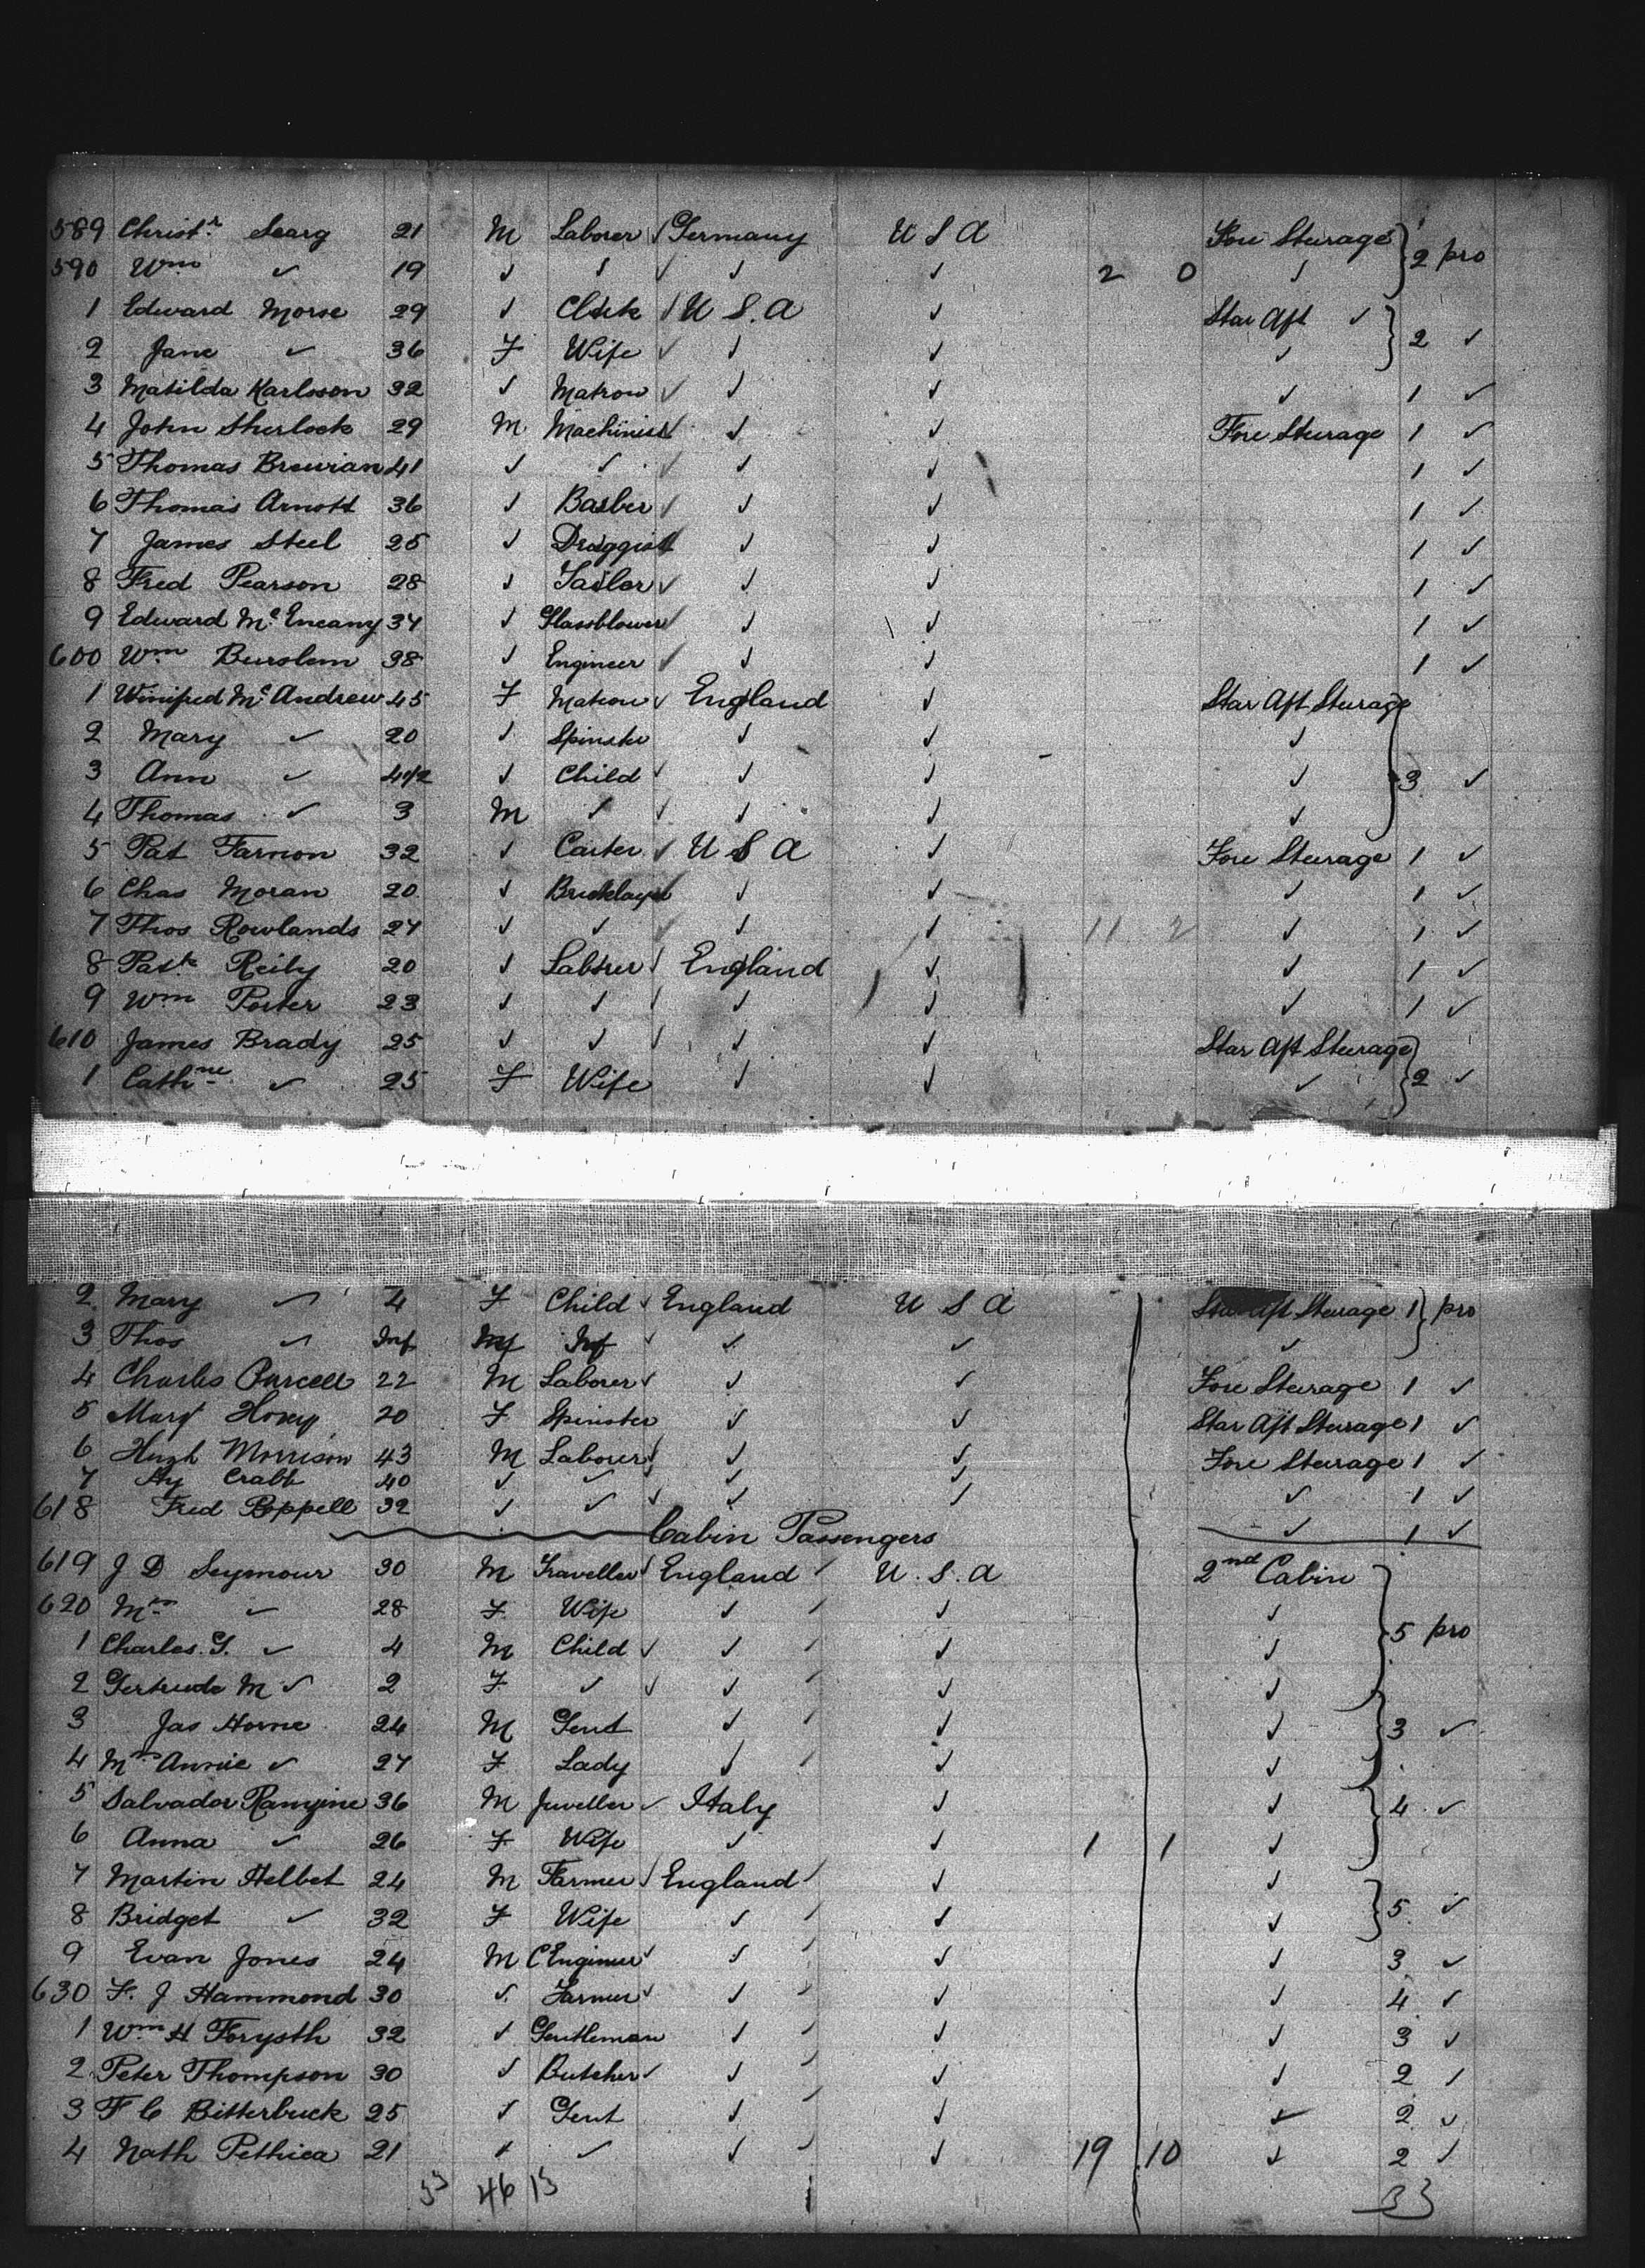 589 Christr Searg 21 M Laborer ✓ Germany U S A Fore Steerage } 2 pro
590 Wm ✓ 19 ✓ ✓ ✓ ✓ ✓ 2 0 ✓
1 Edward Morse 29 ✓ Clerk ✓ U S. A ✓ Star Aft ✓ } 2 ✓
2 Jane ✓ 36 F Wife ✓ ✓ ✓ ✓
3 Matilda Karlsson 32 ✓ Matron ✓ ✓ ✓ ✓ 1 ✓
4 John Sherlock 29 M Machinist ✓ ✓ ✓ Fore Steerage 1 ✓
5 Thomas 41 ✓ ✓ ✓ ✓ ✓ 1 ✓
6 Thomas Arnott 36 ✓ Barber ✓ ✓ ✓ 1 ✓
7 James Steel 25 ✓ Druggist ✓ ✓ ✓ 1 ✓
8 Fred Pearson 28 ✓ Tailor ✓ ✓ ✓ 1 ✓
9 Edward Mc Eneany 34 ✓ Glassblower ✓ ✓ ✓ 1 ✓
600 Wm Burslem 38 ✓ Engineer ✓ ✓ ✓ 1 ✓
1 Winifred Mc Andrew 45 F Matron ✓ England ✓ Star Aft Steerage
2 Mary ✓ 20 ✓ Spinster ✓ ✓ ✓
3 Ann ✓ 4 1/2 ✓ Child ✓ ✓ ✓ ✓ } 3 ✓
4 Thomas ✓ 3 M ✓ ✓ ✓ ✓ ✓
5 Pat Farnon 32 ✓ Carter ✓ U S A ✓ Fore Steerage 1 ✓
6 Chas Moran 20 ✓ Bricklayer ✓ ✓ ✓ ✓ 1 ✓
7 Thos Rowlands 27 ✓ ✓ ✓ ✓ ✓ 11 2 ✓ 1 ✓
8 Patk Reily 20 ✓ Laborer ✓ England ✓ ✓ 1 ✓
9 Wm Porter 23 ✓ ✓ ✓ ✓ ✓ ✓ 1 ✓
610 James Brady 25 ✓ ✓ ✓ ✓ ✓ Star Aft Steerage
1 Cathne ✓ 25 F Wife ✓ ✓ ✓ } 2 ✓
2 Mary ✓ 4 F Child ✓ England U S A Star Aft Steerage 1 } pro
3 Thos ✓ Inf M Inf ✓ ✓ ✓ ✓
4 Charles Purcell 22 M Laborer ✓ ✓ ✓ Fore Steerage 1 ✓
5 Mary 20 F Spinster ✓ ✓ Star Aft Steerage 1 ✓
6 Hugh Morrison 43 M Laborer ✓ ✓ ✓ Fore Steerage 1 ✓
7 Hy Crabb 40 ✓ ✓ ✓ ✓ ✓ ✓ 1 ✓
618 Fred Poppell 32 ✓ ✓ ✓ ✓ ✓ ✓ 1 ✓
Cabin Passengers
619 J D Seymour 30 M Traveller ✓ England U. S. A 2nd Cabin
620 Mrs ✓ 28 F Wife ✓ ✓ ✓
1 Charles. G. ✓ 4 M Child ✓ ✓ ✓ ✓ } 5 pro
2 Gertrude M ✓ 2 F ✓ ✓ ✓ ✓ ✓
3 Jas Horne 24 M Gent ✓ ✓ ✓ } 3 ✓
4 Mrs Annie ✓ 27 F Lady ✓ ✓ ✓
5 Salvador 36 M Jeweller ✓ Italy ✓ ✓ } 4 ✓
6 Anna ✓ 26 F Wife ✓ ✓ 1 1 ✓
7 Martin Helbet 24 M Farmer ✓ England ✓ ✓
8 Bridget ✓ 32 F Wife ✓ ✓ ✓ } 5 ✓
9 Evan Jones 24 M C Engineer ✓ ✓ ✓ ✓ 3 ✓
630 F. J Hammond 30 ✓ Farmer ✓ ✓ ✓ ✓ 4 ✓
1 Wm H Forysth 32 ✓ Gentleman ✓ ✓ ✓ 3 ✓
2 Peter Thompson 30 ✓ Butcher ✓ ✓ ✓ ✓ 2 ✓
3 F C Bitterbuck 25 ✓ Gent ✓ ✓ ✓ 2 ✓
4 Nath Pethica 21 ✓ ✓ ✓ ✓ 19 10 ✓ 2 ✓
33 46 15 33